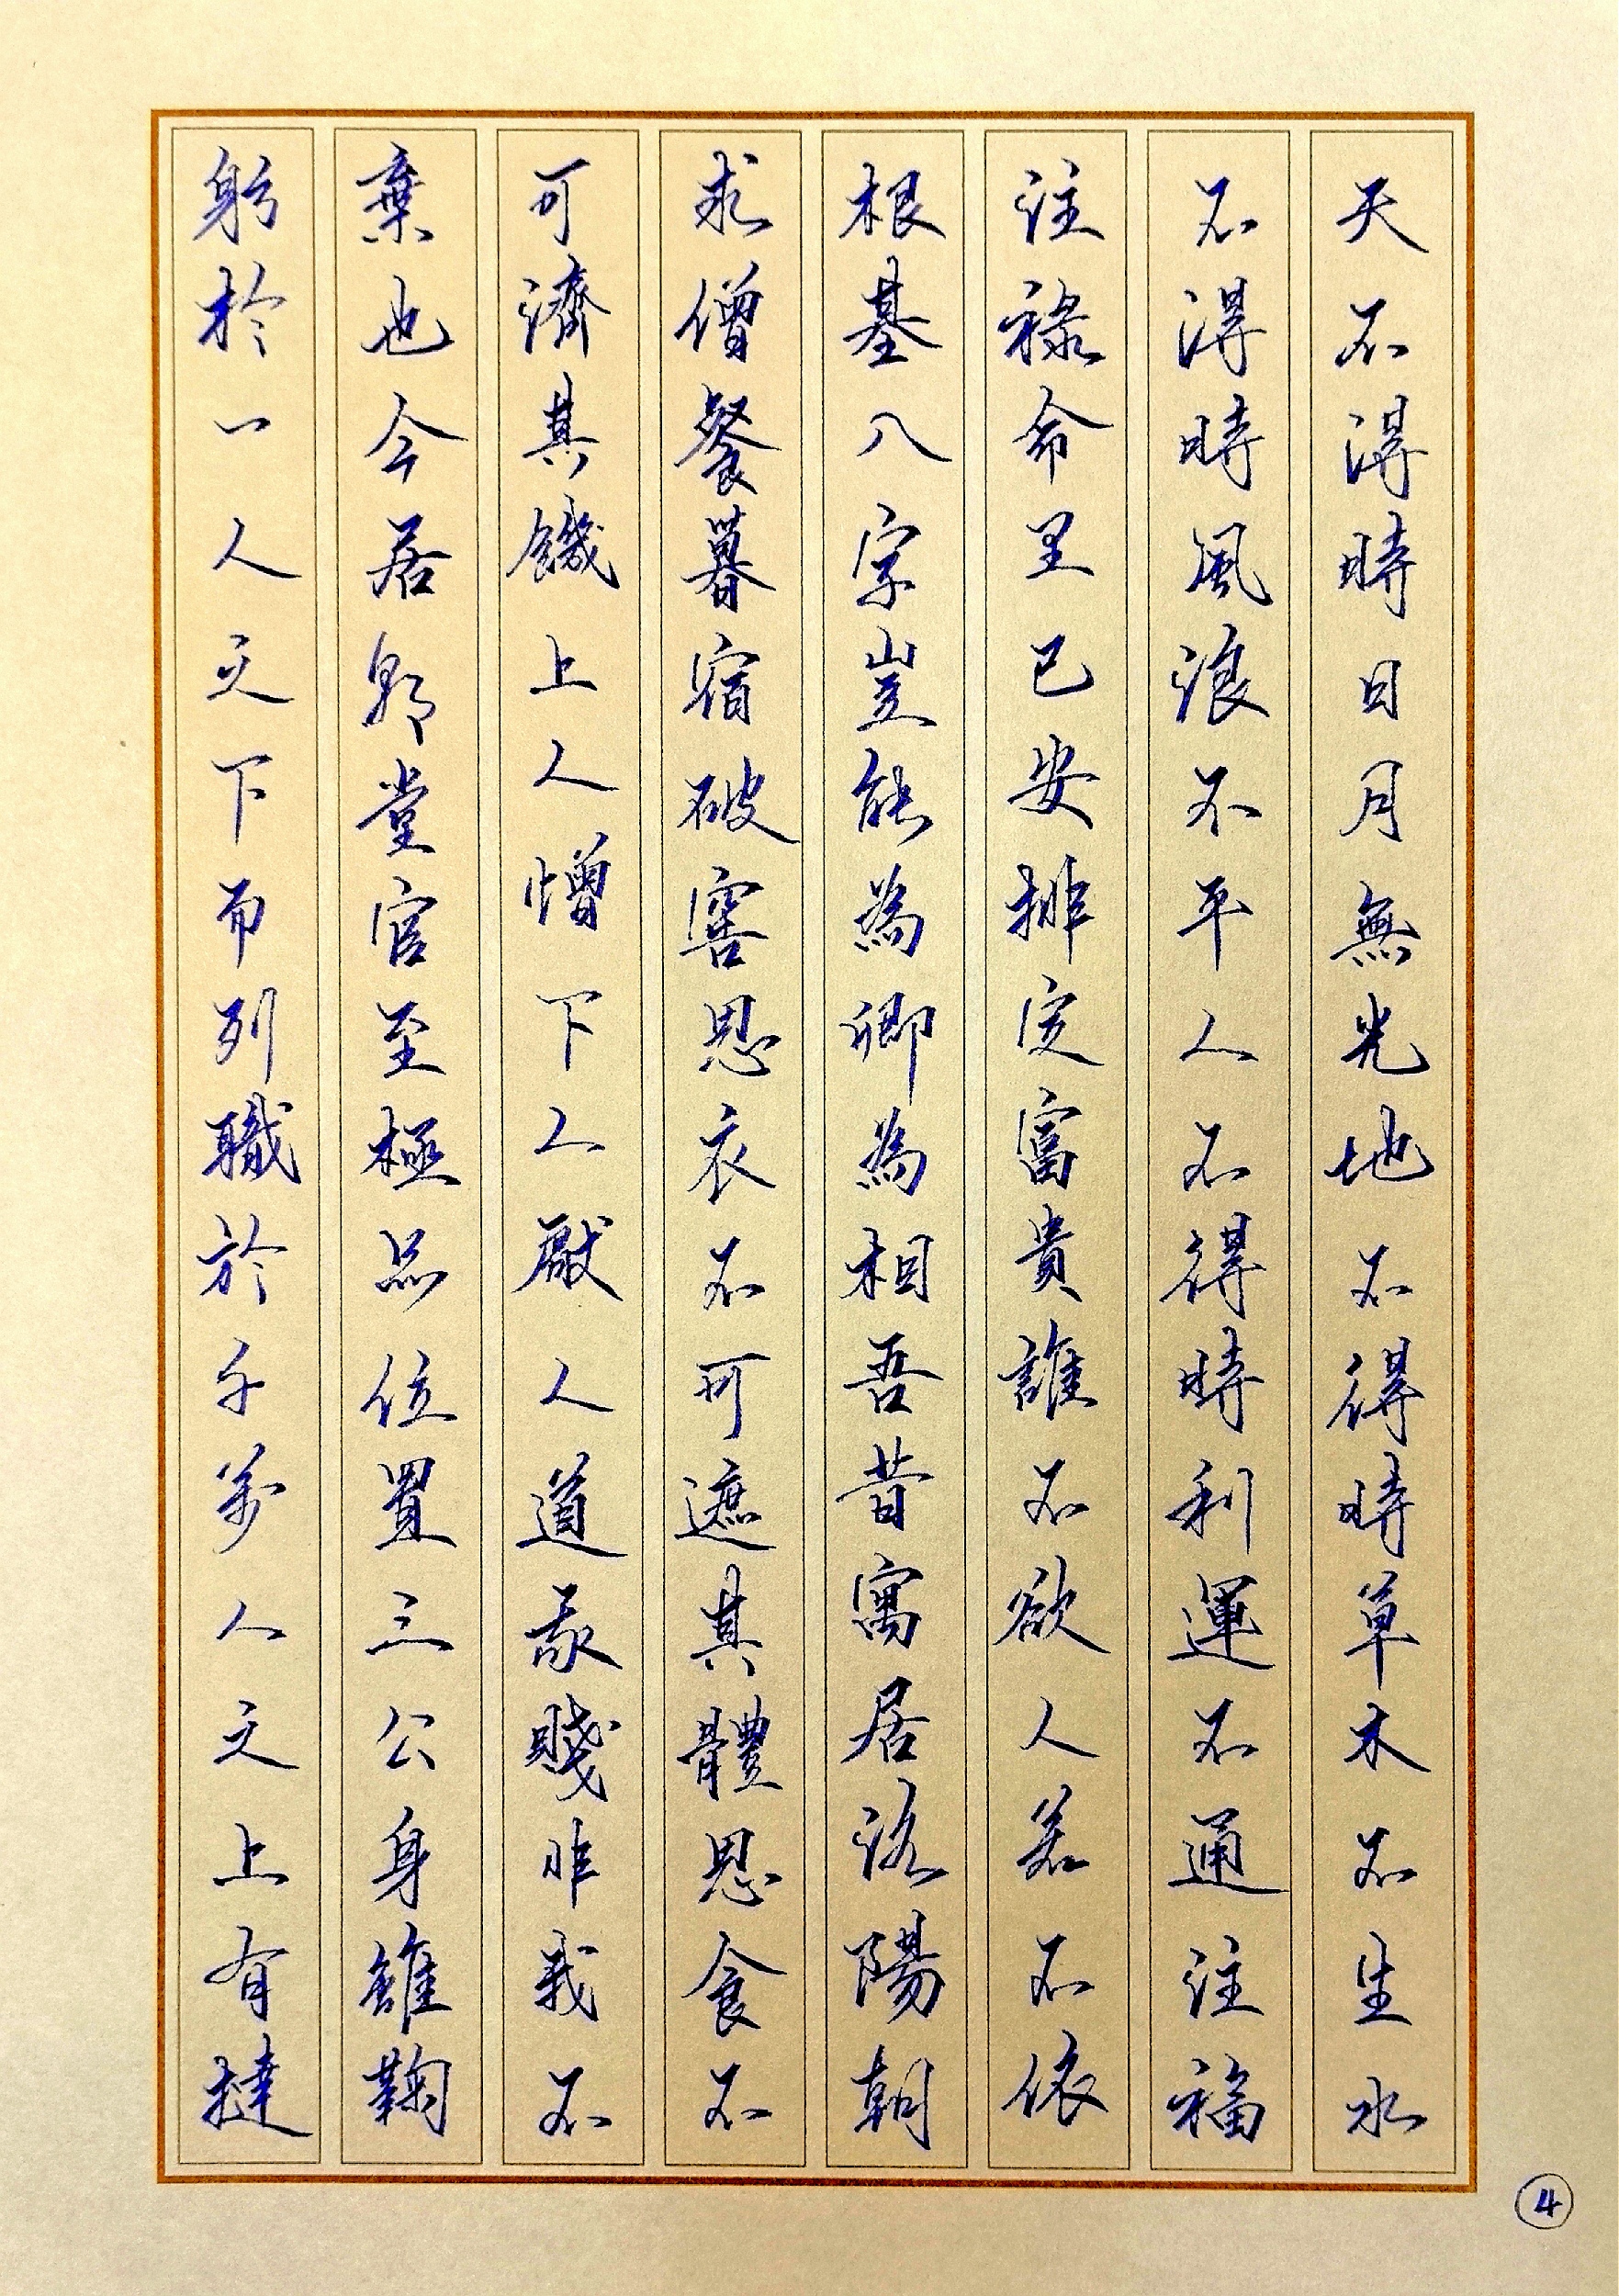 天不得時日月無光地不得時草木不生水
不得時風浪不平人不得時利運不通注福
注祿命里已安排定富貴誰不欲人若不依
根基八字豈能為卿為相吾昔寓居洛陽朝
求僧餐暮宿破窖思衣不可遮其體思食不
可濟其饑上人憎下人厭人道我賤非我不
棄也今居朝堂官至極品位置三公身雖鞠
躬於一人之下而列職於千萬人之上有撻
④